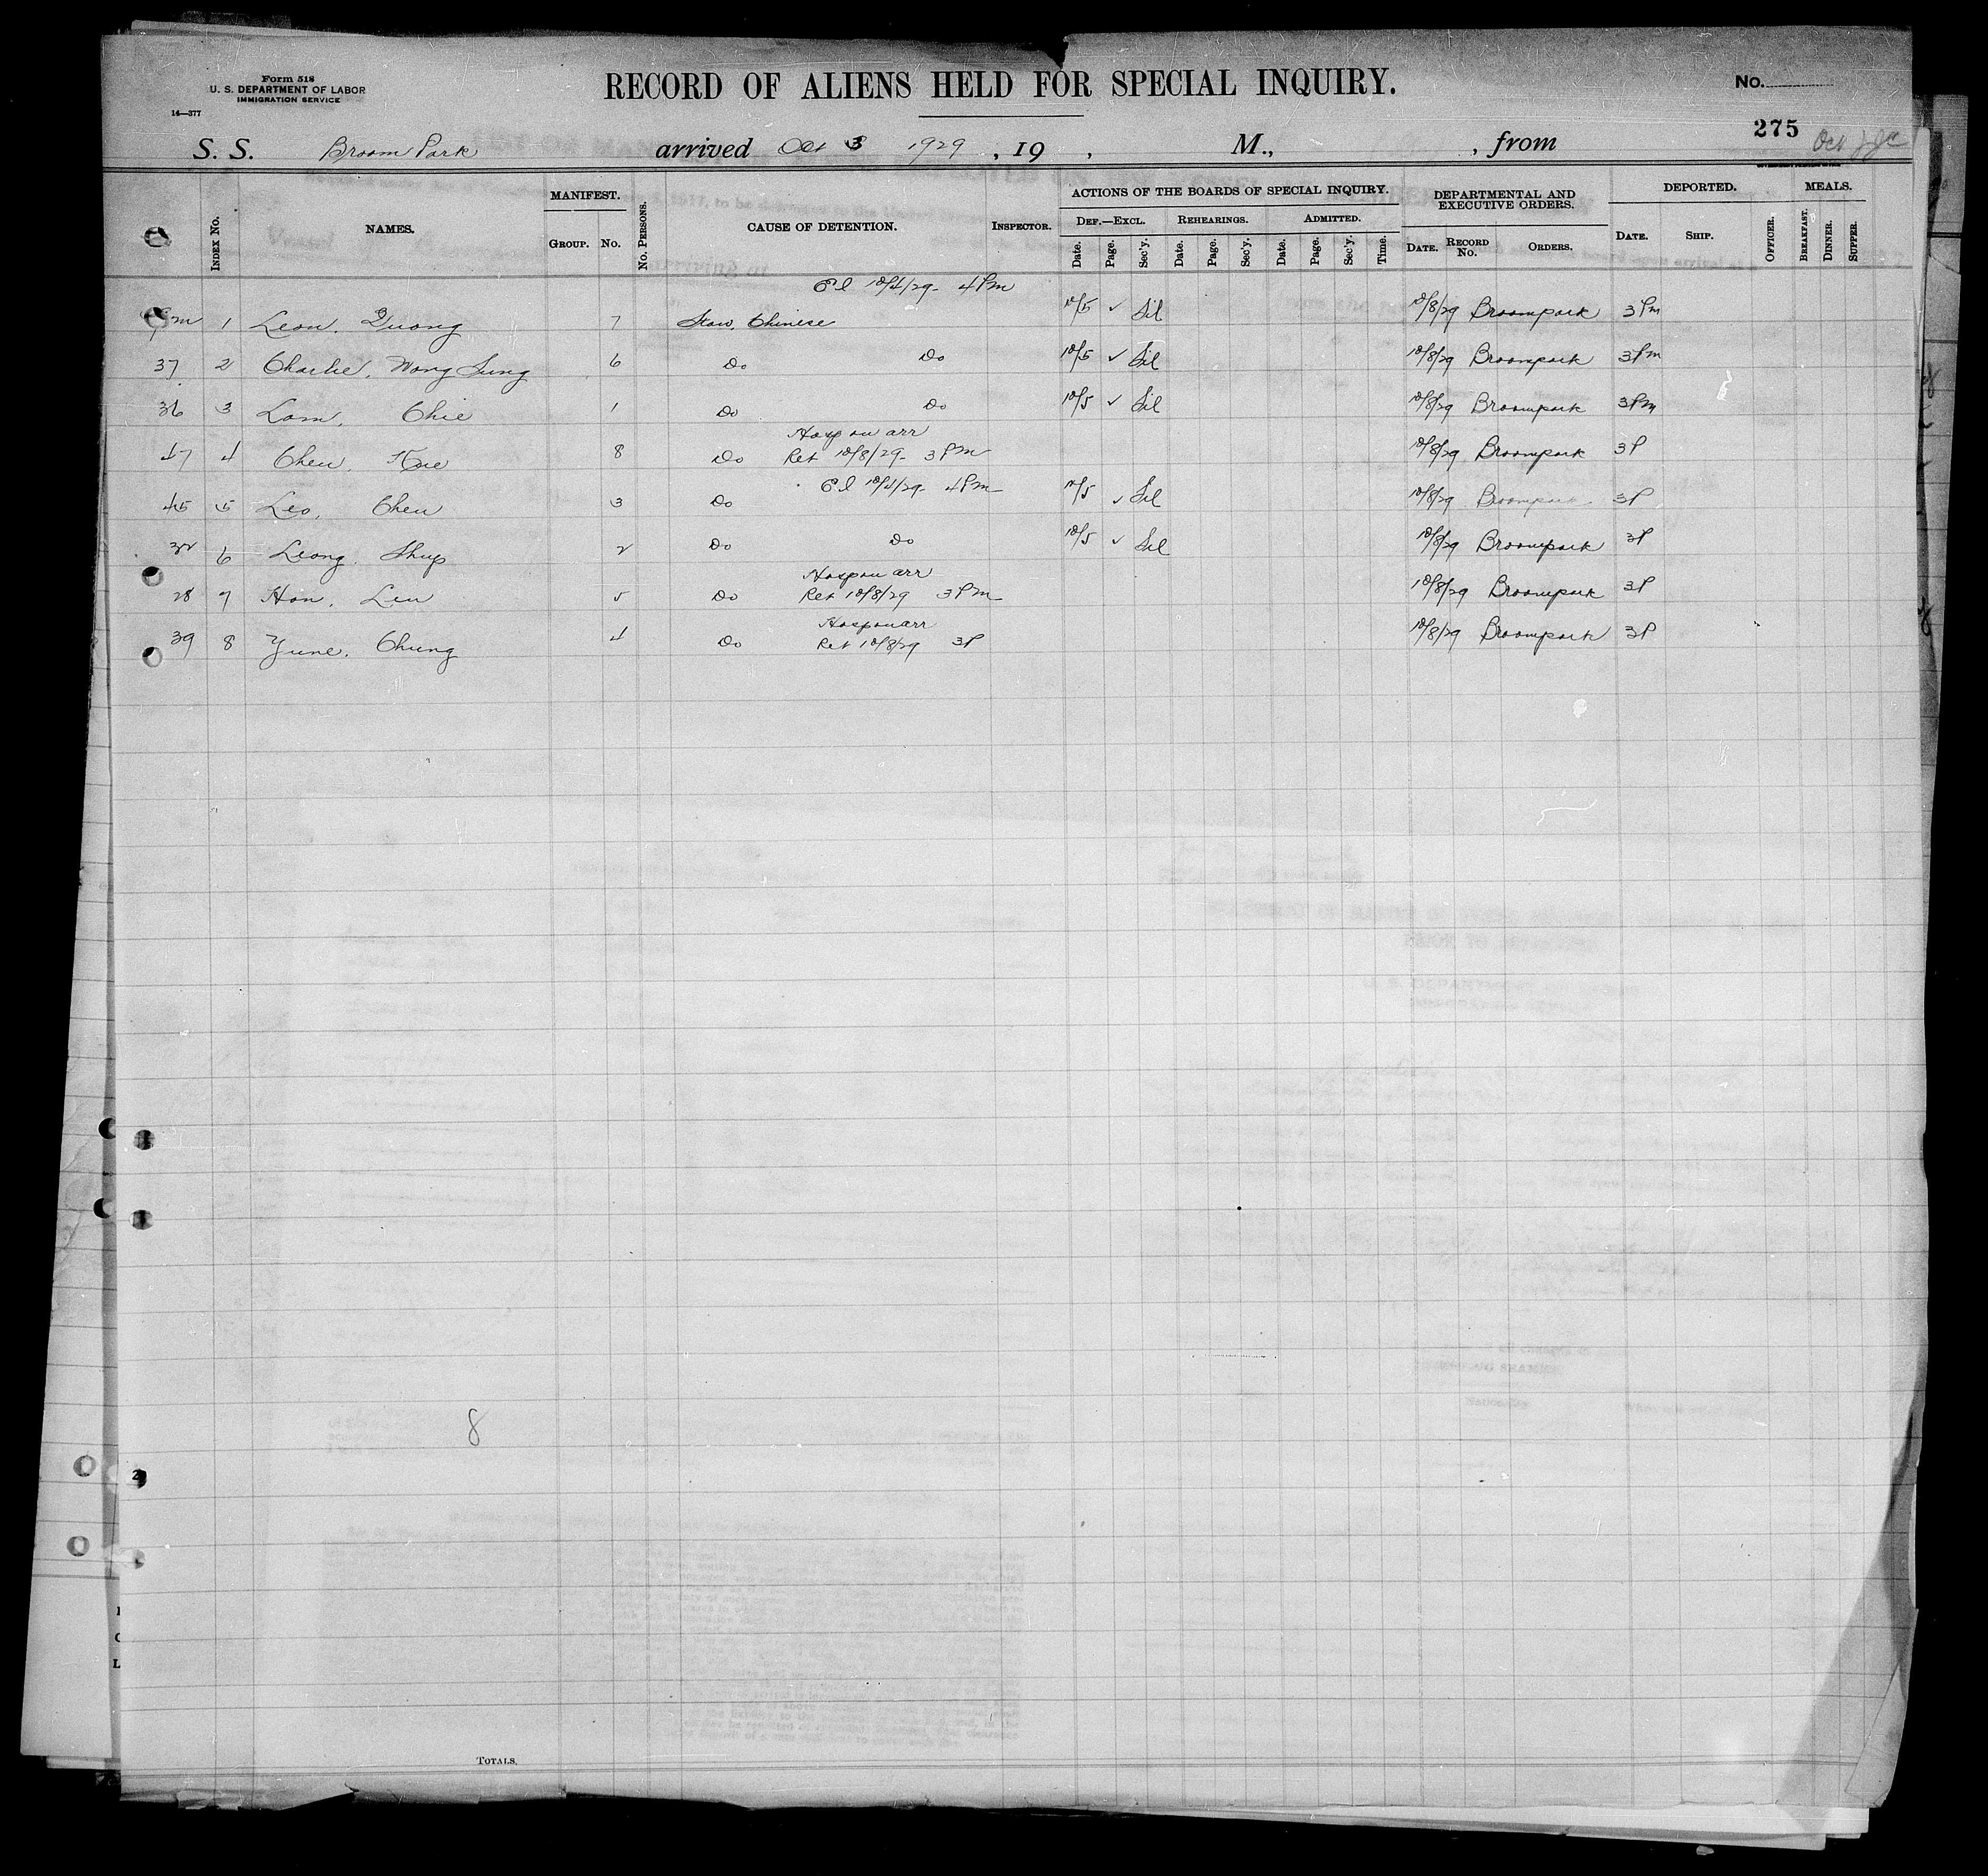 Form 518
U. S. DEPARTMENT OF LABOR
IMMIGRATION SERVICE
14—377
RECORD OF ALIENS HELD FOR SPECIAL INQUIRY.
No.
275
S. S. Broom Park arrived Oct 3 1929, 19 , M., , from
MANIFEST. ACTIONS OF THE BOARDS OF SPECIAL INQUIRY. DEPARTMENTAL AND EXECUTIVE ORDERS. DEPORTED. MEALS.
Index No. NAMES. Group. No. No. Persons. CAUSE OF DETENTION. Inspector. Def.—Excl. Rehearings. Admitted.
Date. Page. Sec'y. Date. Page. Sec'y. Date. Page. Sec'y. Time. Date. Record No. Orders. Date. Ship. Officer. Breakfast. Dinner. Supper.
10/4/29- 4 Pm
1 Leon, Quong 7 Stow. Chinese 10/5 ✓ Sil 10/8/29 Broompark 3 Pm
37 2 Charlie, Wong Sung 6 Do Do 10/5 ✓ Sil 10/8/29 Broompark 3 Pm
36 3 Lam, Chie 1 Do Do 10/5 ✓ Sil 10/8/29 Broompark 3 Pm
Hosp on arr
47 4 Chew, 8 Do Ret 10/8/29- 3 Pm 10/8/29 Broompark 3 P
10/4/29- 4 Pm
45 5 Leo, Chew 3 Do 10/5 ✓ Sil 10/8/29 Broompark 3 P
6 Leong, Shup 2 Do Do 10/5 ✓ Sil 10/8/29 Broompark 3 P
Hosp on arr
28 7 Hon, Leu 5 Do Ret 10/8/29 3 Pm 10/8/29 Broompark 3 P
Hosp on arr
39 8 Yune, Chung 4 Do Ret 10/8/29 3 P 10/8/29 Broompark 3 P
8
2
Totals.